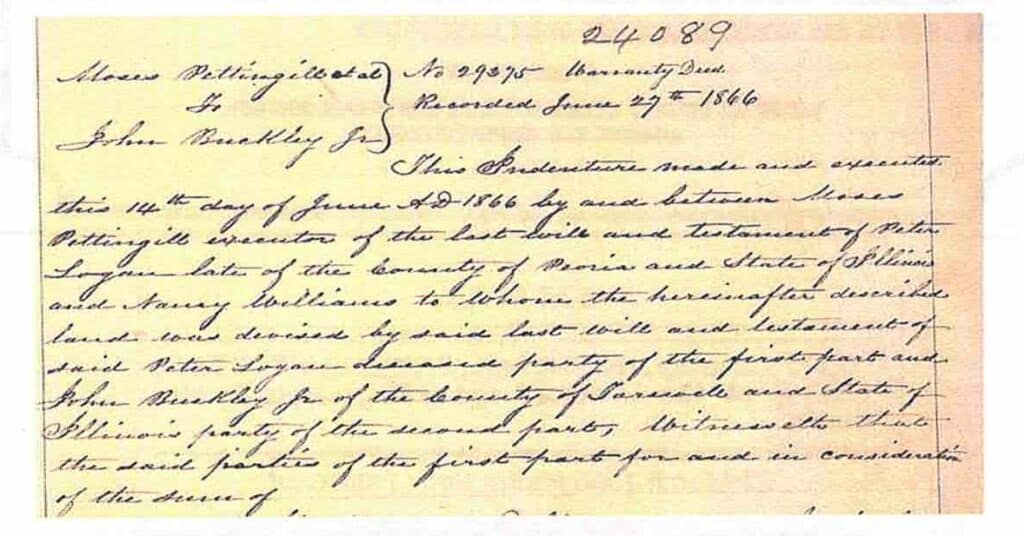 24089
Moses Pettingill et al } No 29375 Warranty Deed
To } Recorded June 27th 1866
John Buckley Jr }
This Indenture made and executed
this 14th day of June AD 1866 by and between Moses
Pettingill executor of the last will and testament of Peter
Logan late of the County of Peoria and State of Illinois
and Nancy Williams to whom the hereinafter described
land was devised by said last will and testament of
said Peter Logan deceased party of the first part and
John Buckley Jr of the County of Tazewell and State of
Illinois party of the second part, Witnesseth that
the said parties of the first part for and in consideration
of the sum of